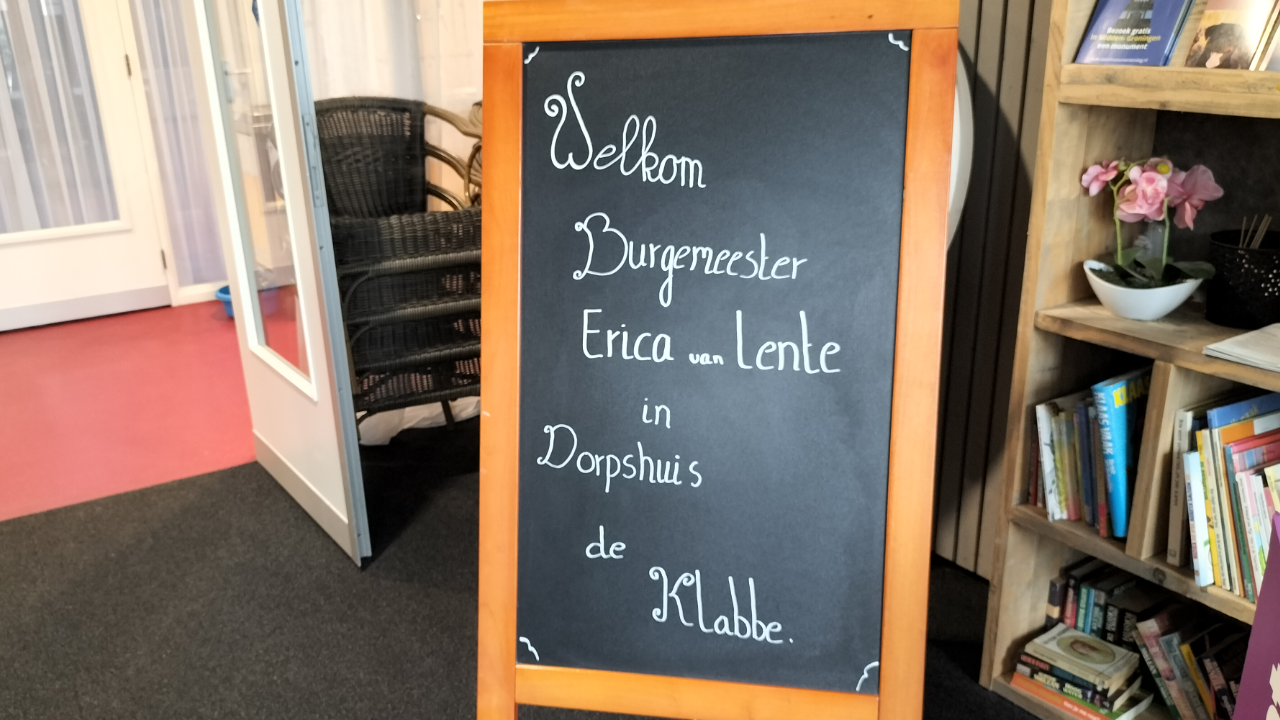 Welkom
Burgemeester
Erica van Lente
in
Dorpshuis
de
Klabbe.
Bezoek gratis
in Midden-Groningen
een monument